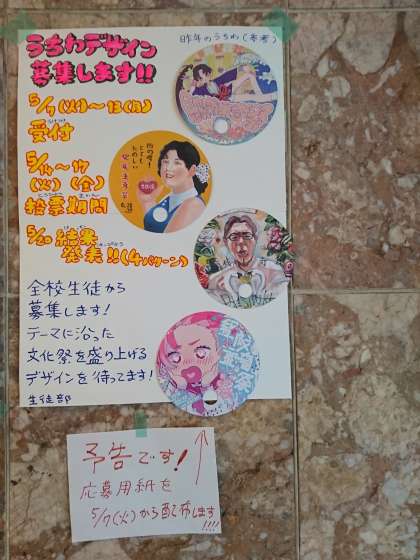 うちわデザイン
募集します!!
昨年のうちわ(参考)
5/7(火)〜13(月)
受付
5/14〜17
(火) (金)
投票期間
5/20 結果
発表!!(4パターン)
全校生徒から
募集します!
テーマに沿った
文化祭を盛り上げる
デザインを待ってます!
生徒部
予告です!
応募用紙を
5/7(火)から配布します
!!!!